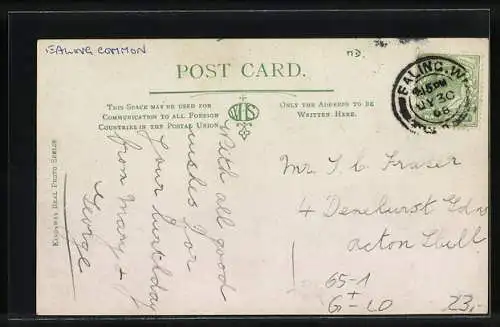 EALING COMMON
MD.
POST CARD.
THIS SPACE MAY BE USED FOR
COMMUNICATION TO ALL FOREIGN
COUNTRIES IN THE POSTAL UNION.
ONLY THE ADDRESS TO BE
WRITTEN HERE.
EALING.W
8.15PM
MY 30
KINGSWAY REAL PHOTO SERIES
With all good
wishes for
your birthday
from Mary &
George
Mr. T. C. Fraser
4 Denehurst Gdns
Acton Hill
65-1
23,-